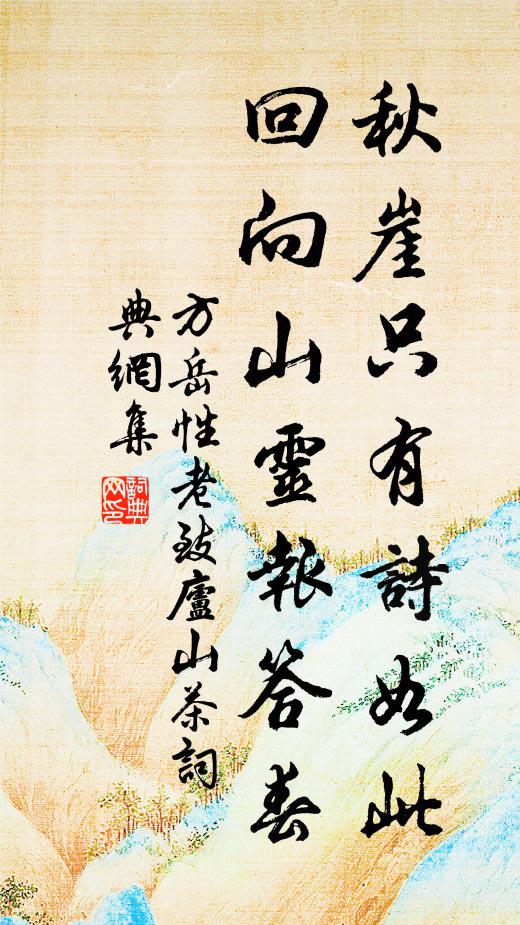 秋崖只有詩如此
回向山靈報答春
方岳性老致廬山茶詞
典網集
詞典
网印